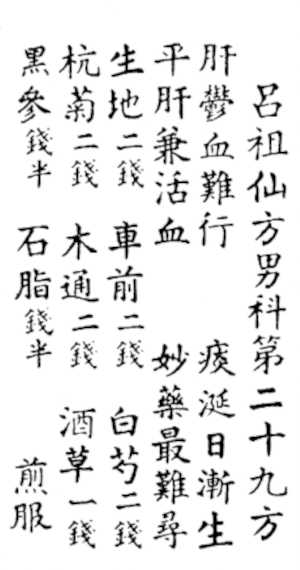 呂祖仙方男科第二十九方
肝鬱血難行 痰涎日漸生
平肝兼活血 妙藥最難尋
生地二錢 車前二錢 白芍二錢
杭菊二錢 木通二錢 酒草一錢
黑參錢半 石脂錢半 煎服